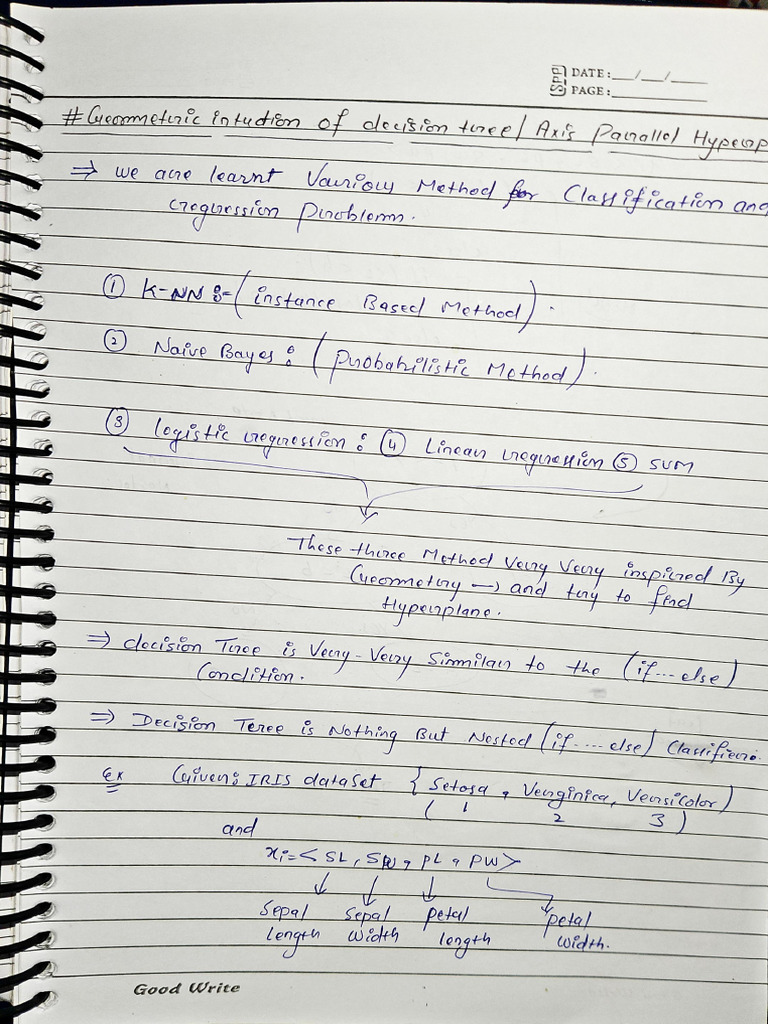 SPP DATE:__/__/___
PAGE:___________
# Geormetric intuction of decision tree / Axis Parallel Hyperp
⇒ we are learnt Various Method for Classification and
regression Problem.
① K-NN :- (instance Based Method).
② Naive Bayes : (Probabilistic Method).
③ logistic regression : ④ Linear regression ⑤ SVM
These three Method Very Very inspired By
Geormetry → and try to find
Hyperplane.
⇒ decision Tree is Very-Very Simmilar to the (if---else)
Condition.
⇒ Decision Teree is Nothing But Nested (if .... else) Classifier.
Ex Given: IRIS dataset { Setosa, Verginica, Versicolor)
( 1 2 3 )
and
xi = < SL, SW, PL, PW>
Sepal Sepal Petal Petal
length width length width.
Good Write